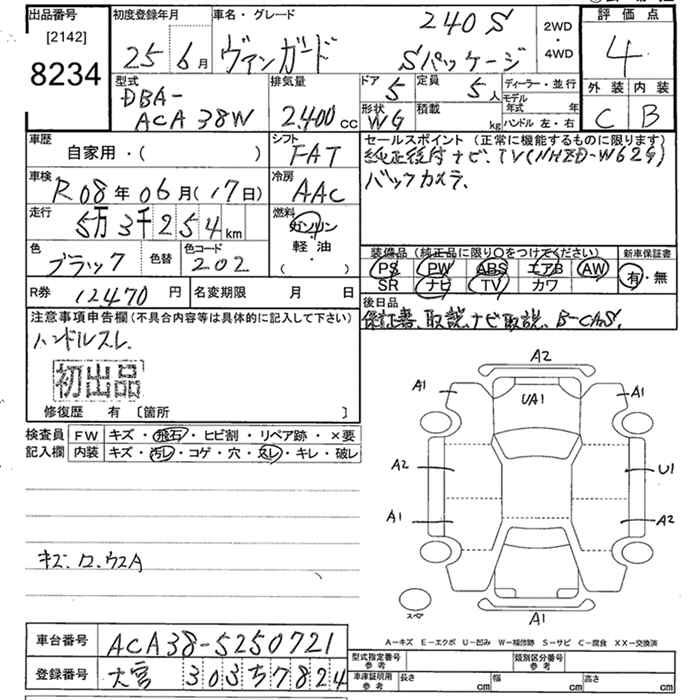 出品番号
[2142]
8234
初度登録年月
25年6月
車名・グレード
ヴァンガード
240S
Sパッケージ
2WD
・
4WD
評価点
4
外装 内装
C B
型式
DBA-
ACA38W
排気量
2,400cc
ドア
5
定員
5人
ディーラー・並行
モデル
年式 年
形状
WG
積載
kg
ハンドル左・右
車歴
自家用・( )
シフト
FAT
車検
R08年06月(17日)
冷房
AAC
走行
5万3千254km
燃料
ガソリン
・
軽・油
・
( )
色
ブラック
色替
色コード
202
R券
12470円
名変期限 月 日
セールスポイント(正常に機能するものに限ります)
純正後付ナビ、TV(NHZD-W62G)
バックカメラ、
装備品(純正品に限り○をつけてください)
新車保証書
PS PW ABS エアB AW
SR ナビ TV カワ
有・無
後日品
保証書、取説、ナビ取説、B-CAS、
注意事項申告欄(不具合内容等は具体的に記入して下さい)
ハンドルスレ、
初出品
修復歴 有 [箇所 ]
検査員
記入欄
FW キズ・飛石・ヒビ割・リペア跡・×要
内装 キズ・汚レ・コゲ・穴・スレ・キレ・破レ
キズ、ロ、ウスA
A2
A1 UA1 A1
A2 U1
A1 A2
スペア
A1
A-キズ E-エクボ U-凹み W-補修跡 S-サビ C-腐食 XX-交換済
車台番号
ACA38-5250721
登録番号
大宮 303 7824
型式指定番号
参考
類別区分番号
参考
車庫証明用
参考
長さ cm 幅 cm 高さ cm